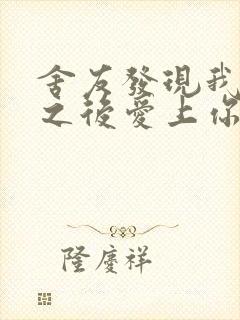 舍友發現我
之後愛上你
隆慶祥